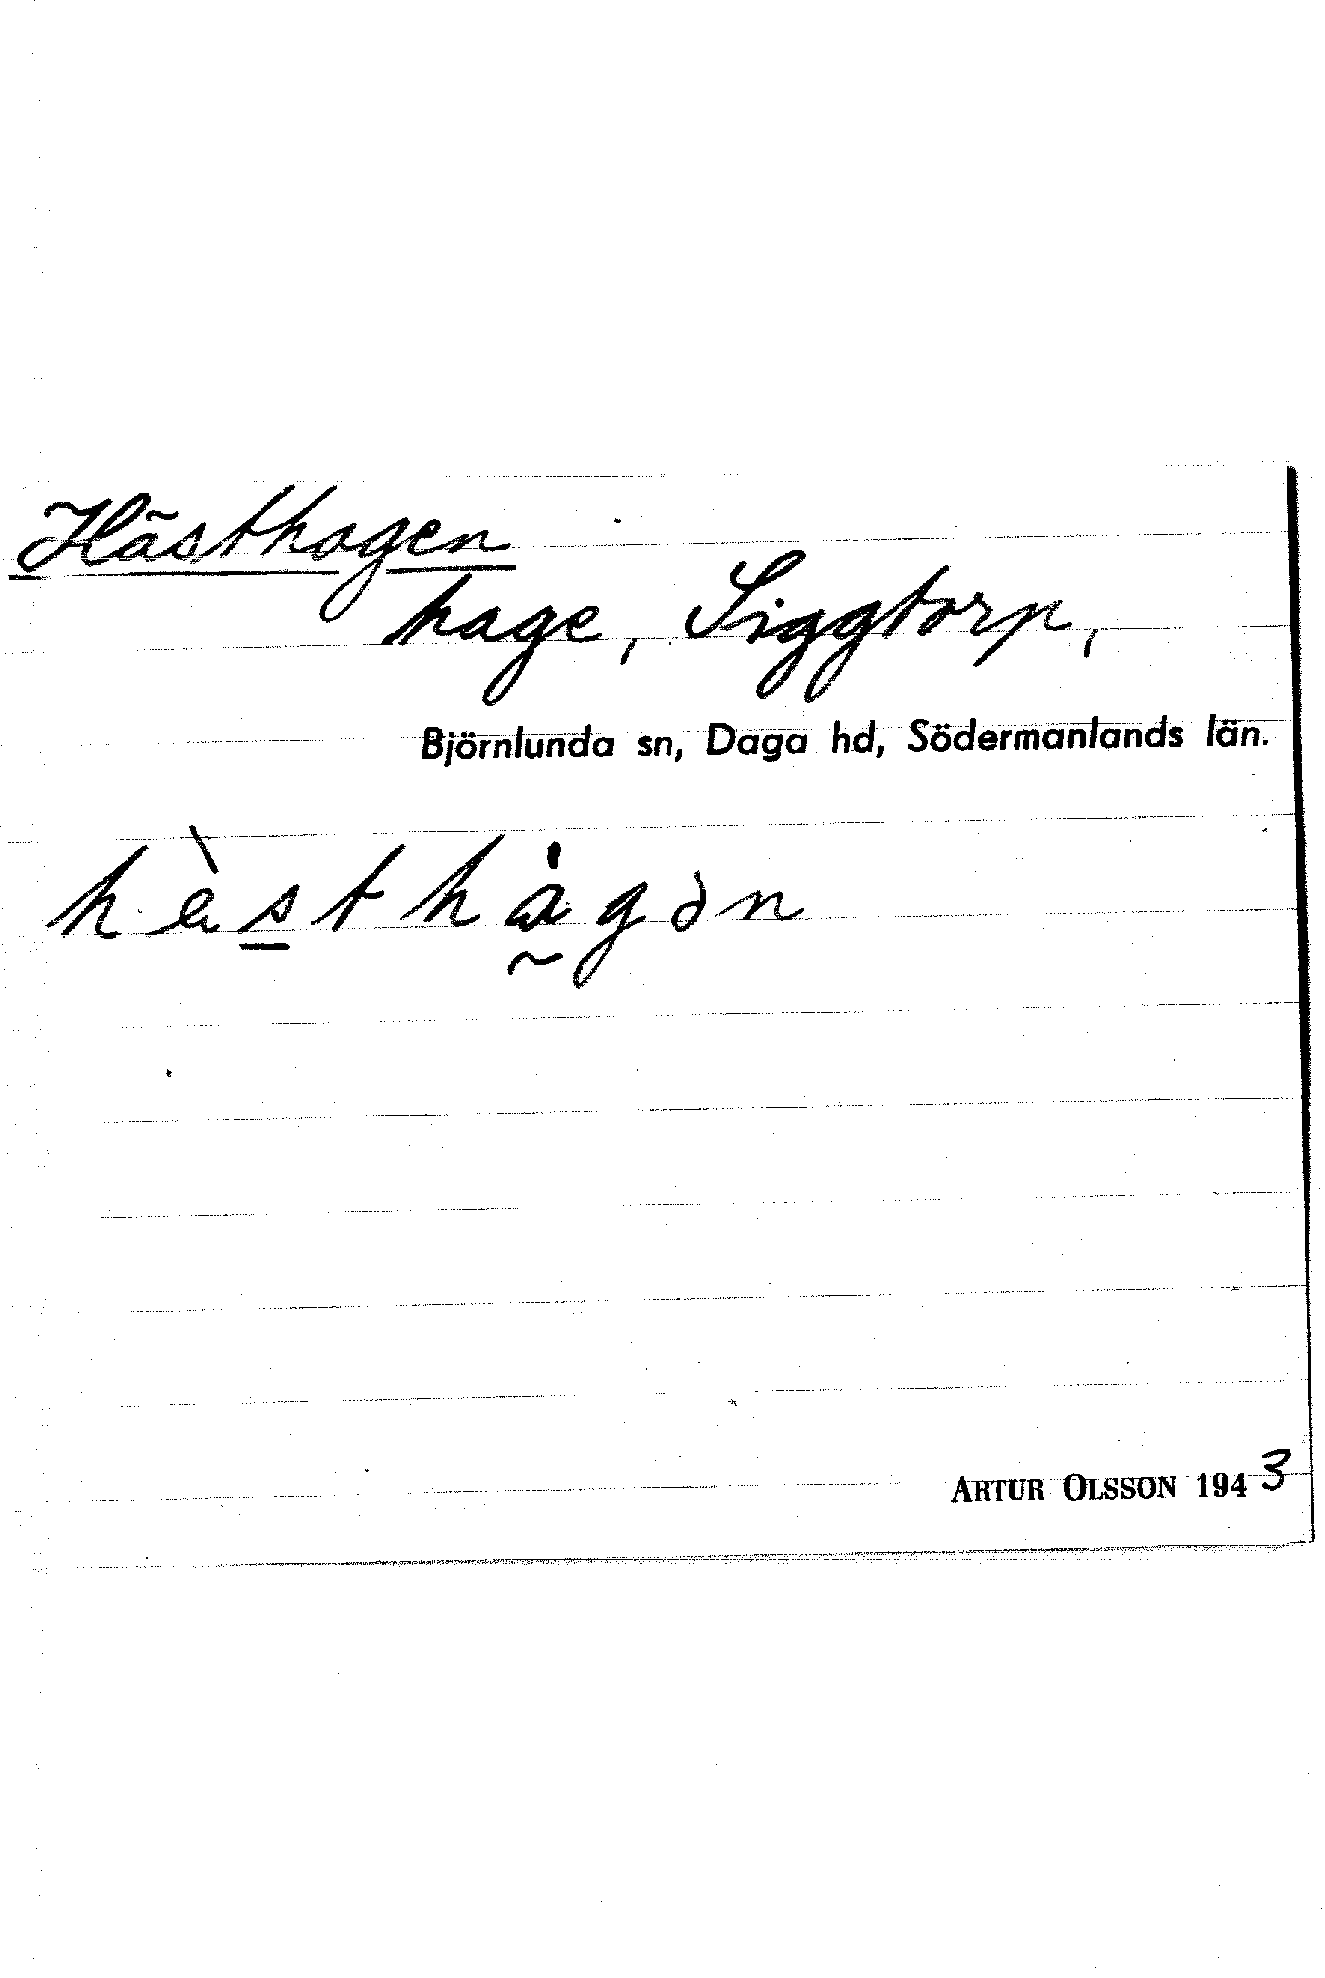 Hästhagen
hage, Siggtorp,
Björnlunda sn, Daga hd, Södermanlands län.
hὲsthågən
ARTUR OLSSON 1943